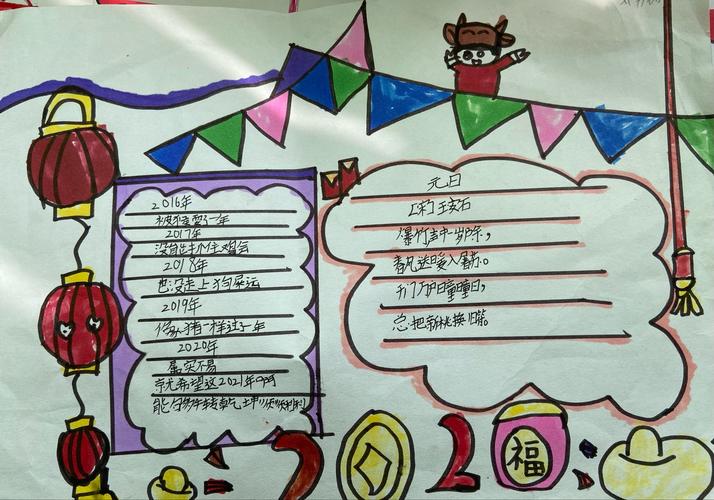 2016年
被猴耍了一年
2017年
没有
2018年
也没走上狗屎运
2019年
像猪一样过了一年
2020年
属实不易
就希望这2021年啊
能牛转乾
元日
[宋]王安石
爆竹声中一岁除,
春风送暖入屠苏。
千门万户曈曈日,
总把新桃换旧符。
福